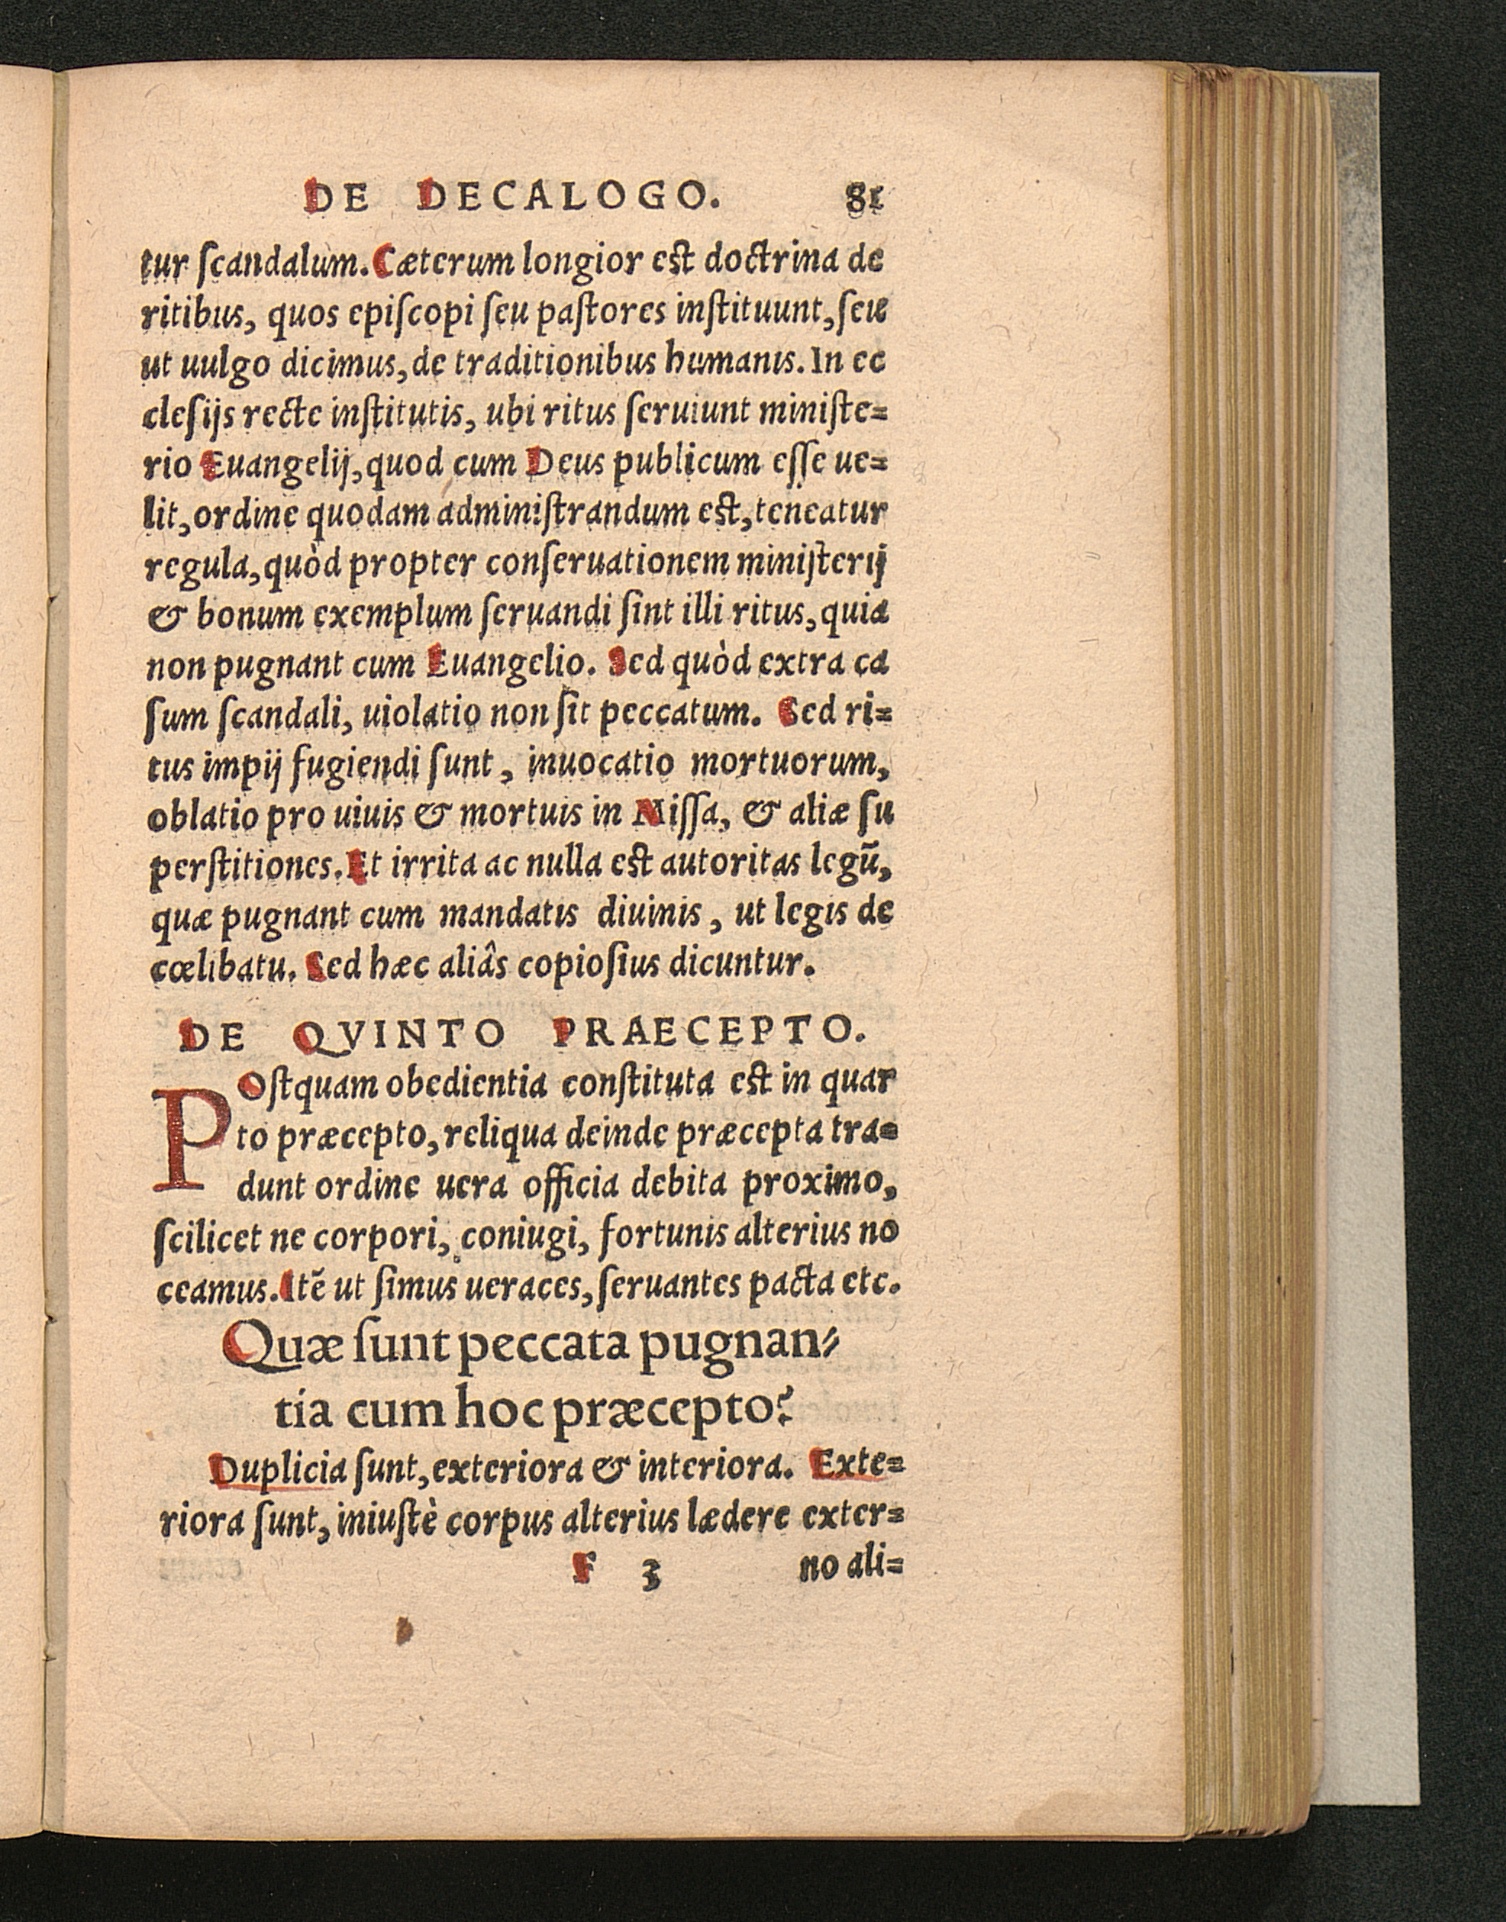 DE DECALOGO. 81
tur ſcandalum. Cæterum longior eſt doctrina de
ritibus, quos epiſcopi ſeu paſtores inſtituunt, ſeu
ut uulgo dicimus, de traditionibus humanis. In ec
cleſijs recte inſtitutis, ubi ritus ſeruiunt miniſte=
rio Euangelij, quod cum Deus publicum eſſe ue=
lit, ordine quodam adminiſtrandum eſt, teneatur
regula, quòd propter conſeruationem miniſterij
& bonum exemplum ſeruandi ſint illi ritus, quia
non pugnant cum Euangelio. Sed quòd extra ca
ſum ſcandali, uiolatio non ſit peccatum. Sed ri=
tus impij fugiendi ſunt, inuocatio mortuorum,
oblatio pro uiuis & mortuis in Miſſa, & aliæ ſu
perſtitiones. Et irrita ac nulla eſt autoritas legū,
quæ pugnant cum mandatis diuinis, ut legis de
cœlibatu. Sed hæc aliâs copioſius dicuntur.
DE QVINTO PRAECEPTO.
POſtquam obedientia conſtituta eſt in quar
to præcepto, reliqua deinde præcepta tra=
dunt ordine uera officia debita proximo,
ſcilicet ne corpori, coniugi, fortunis alterius no
ceamus. Itē ut ſimus ueraces, ſeruantes pacta etc.
Quæ ſunt peccata pugnan⸗
tia cum hoc præcepto?
Duplicia ſunt, exteriora & interiora. Exte=
riora ſunt, iniuſtè corpus alterius lædere exter=
F 3 no ali=